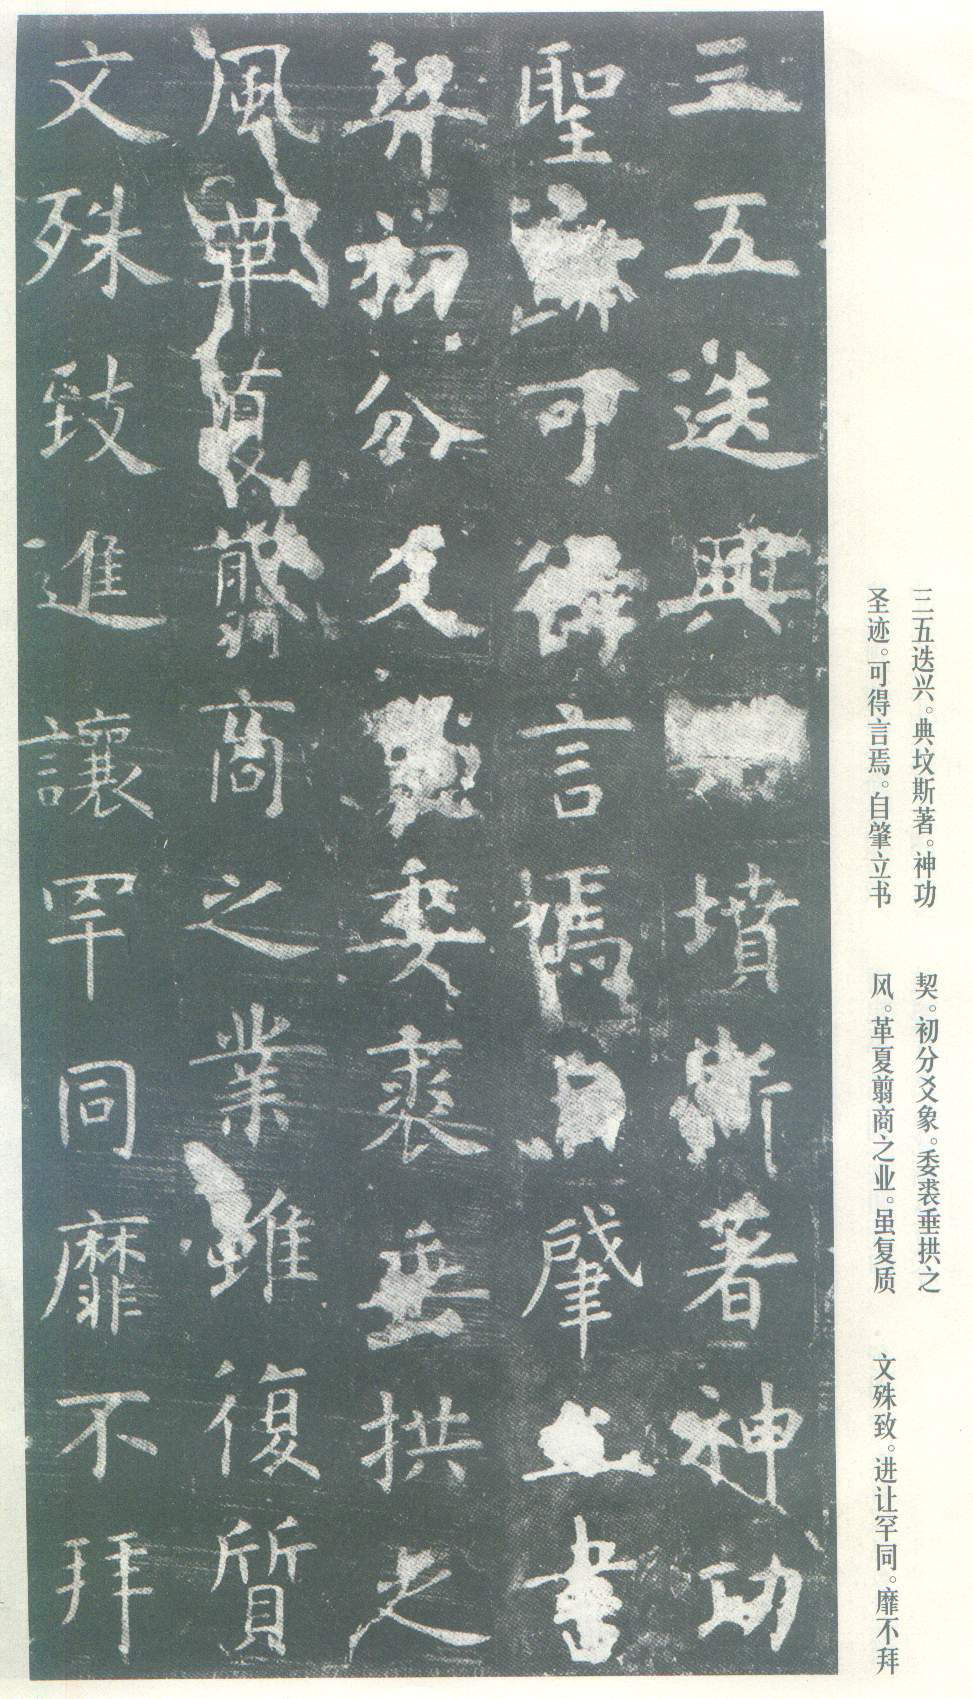 三五迭興墳斯著神功
聖可得言焉自肇立書
契初分爻委裘垂拱之
風革夏翦商之業雖復質
文殊致進讓罕同靡不拜
三五迭兴。典坟斯著。神功
圣迹。可得言焉。自肇立书
契。初分爻象。委裘垂拱之
风。革夏翦商之业。虽复质
文殊致。进让罕同。靡不拜